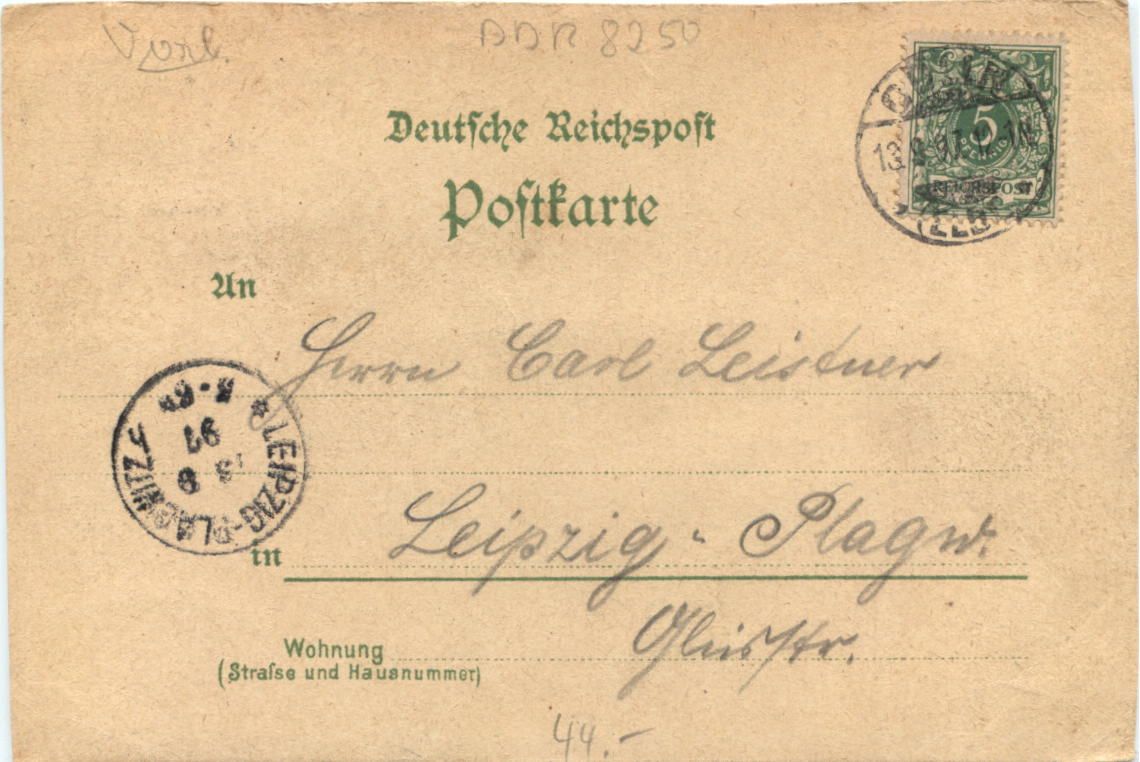 Vorl.
ADR 8250
Deutsche Reichspost
Postkarte
5
PFENNIG
REICHSPOST
(ELBE)
An
Herrn Carl Leistner
LEIPZIG-PLAGWITZ
97
in Leipzig-Plagw.
Wohnung
(Strafse und Hausnummer)
44.-